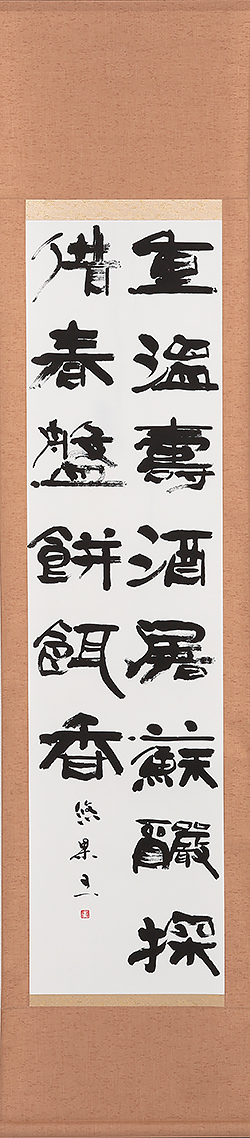 重溫壽酒屠蘇釅探
借春盤餅餌香
悠果士